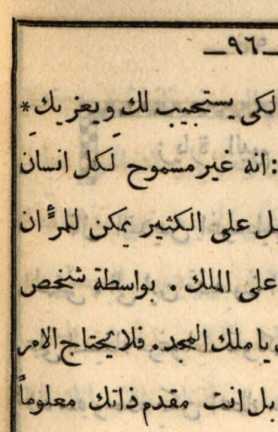 ـ٩٦ـ
لكى يستجيب لكِ ويعزيكِ *
: انه غير مسموح لكل انسان
ل على الكثير يمكن للمرءِ ان
على الملك . بواسطة شخص
يا ملك المجد . فلا يحتاج الامر
بل انت مقدم ذاتك معلوماً